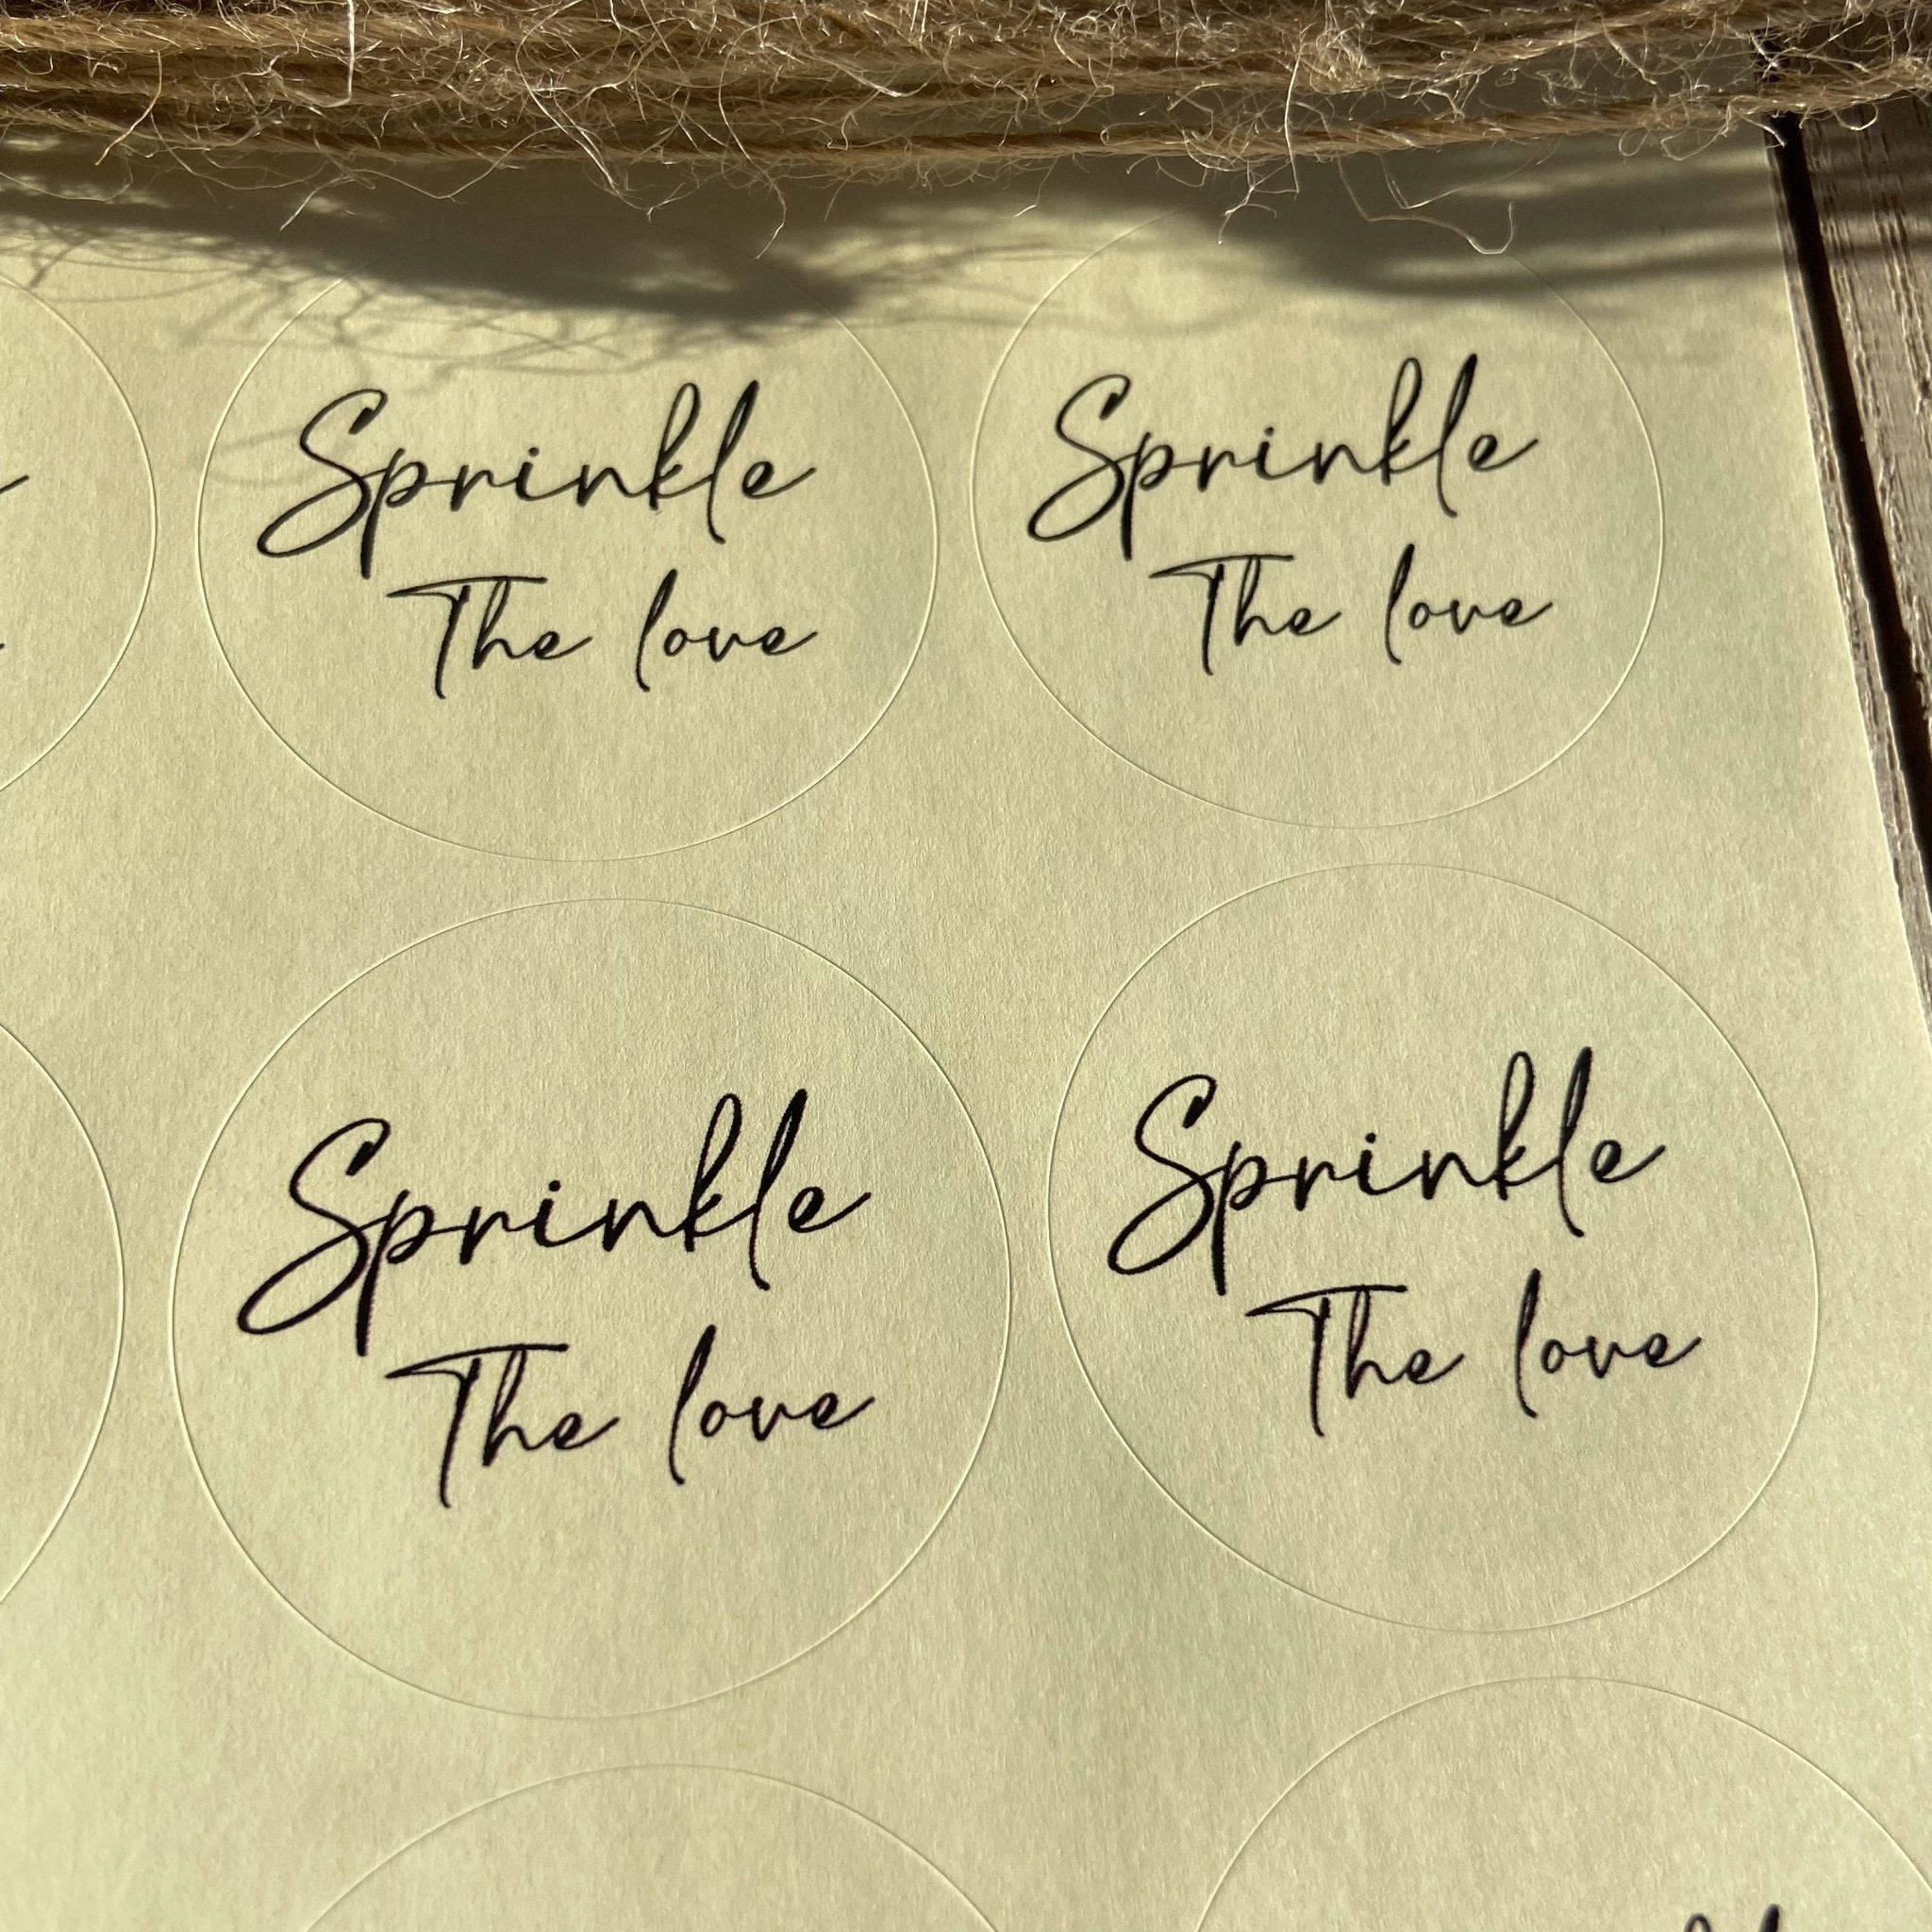 Sprinkle
The love
Sprinkle
The love
Sprinkle
The love
Sprinkle
The love